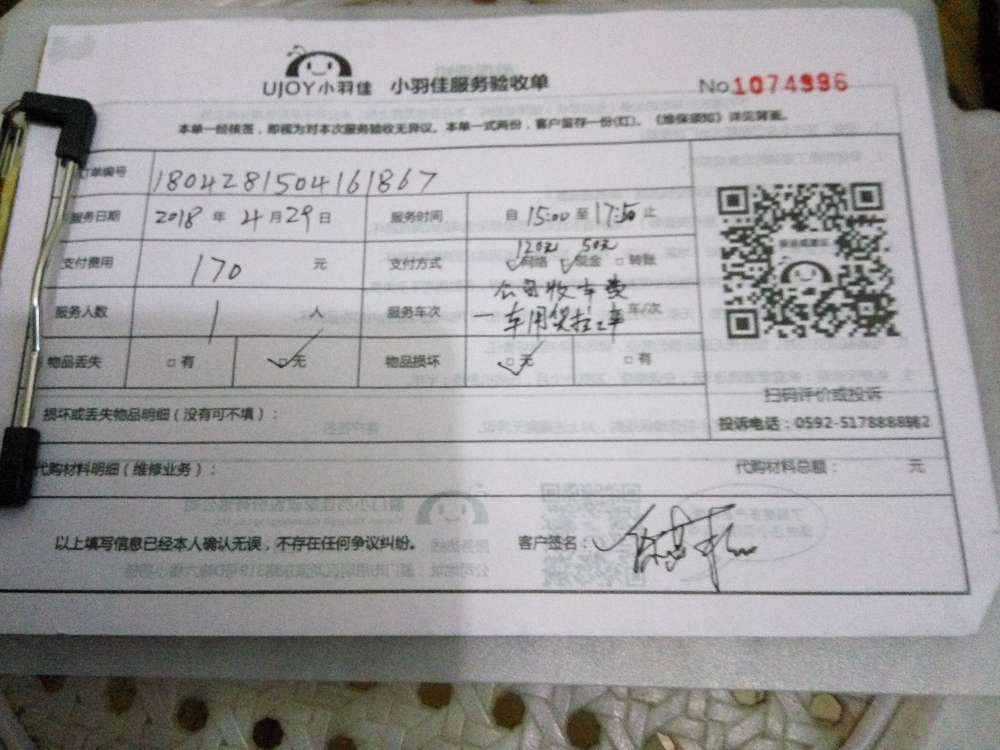 UJOY小羽佳 小羽佳服务验收单 No 1074996
本单一经核签，即视为对本次服务验收无异议。本单一式两份，客户留存一份(红)。《维保须知》详见背面。
订单编号 1804281504161867
服务日期 2018 年 4 月 29 日 服务时间 自 15:00 至 17:50 止
120元 50元
支付费用 170 元 支付方式 ☑网络 ☑现金 □转账
公司收车费
服务人数 1 人 服务车次 一车用货拉 车/次
物品丢失 □有 ☑无 物品损坏 ☑无 □有
扫码评价或投诉
损坏或丢失物品明细（没有可不填）：
投诉电话：0592-5178888转2
代购材料明细（维修业务）： 代购材料总额： 元
以上填写信息已经本人确认无误，不存在任何争议纠纷。 客户签名：